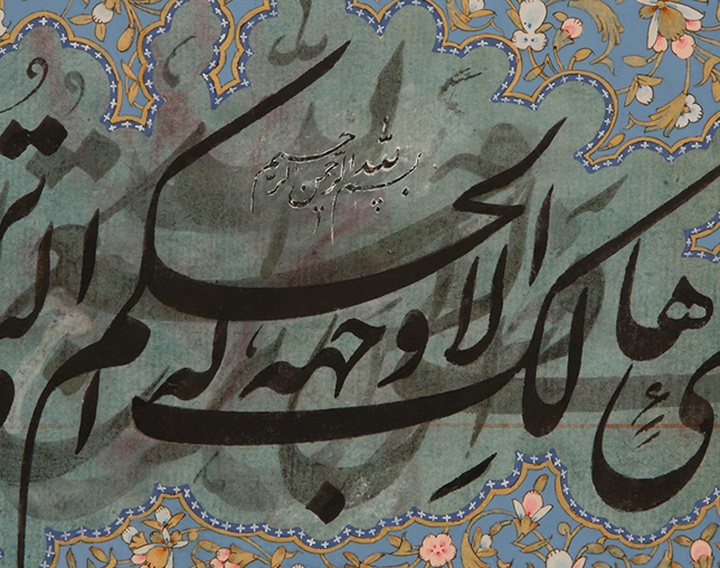 بسم الله الرحمن الرحيم
هالك الا وجهه له الحكم